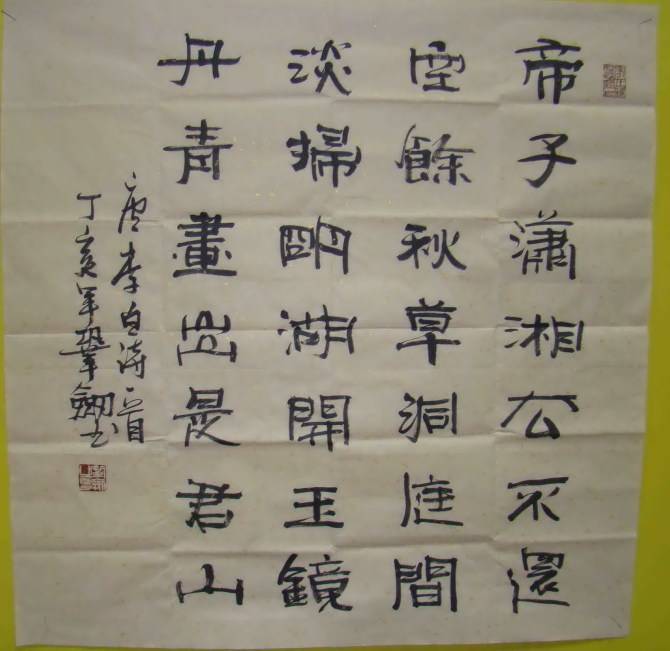 帝子瀟湘去不還
空餘秋草洞庭間
淡掃明湖開玉鏡
丹青畫出是君山
唐李白詩一首
丁亥年鞏劍书